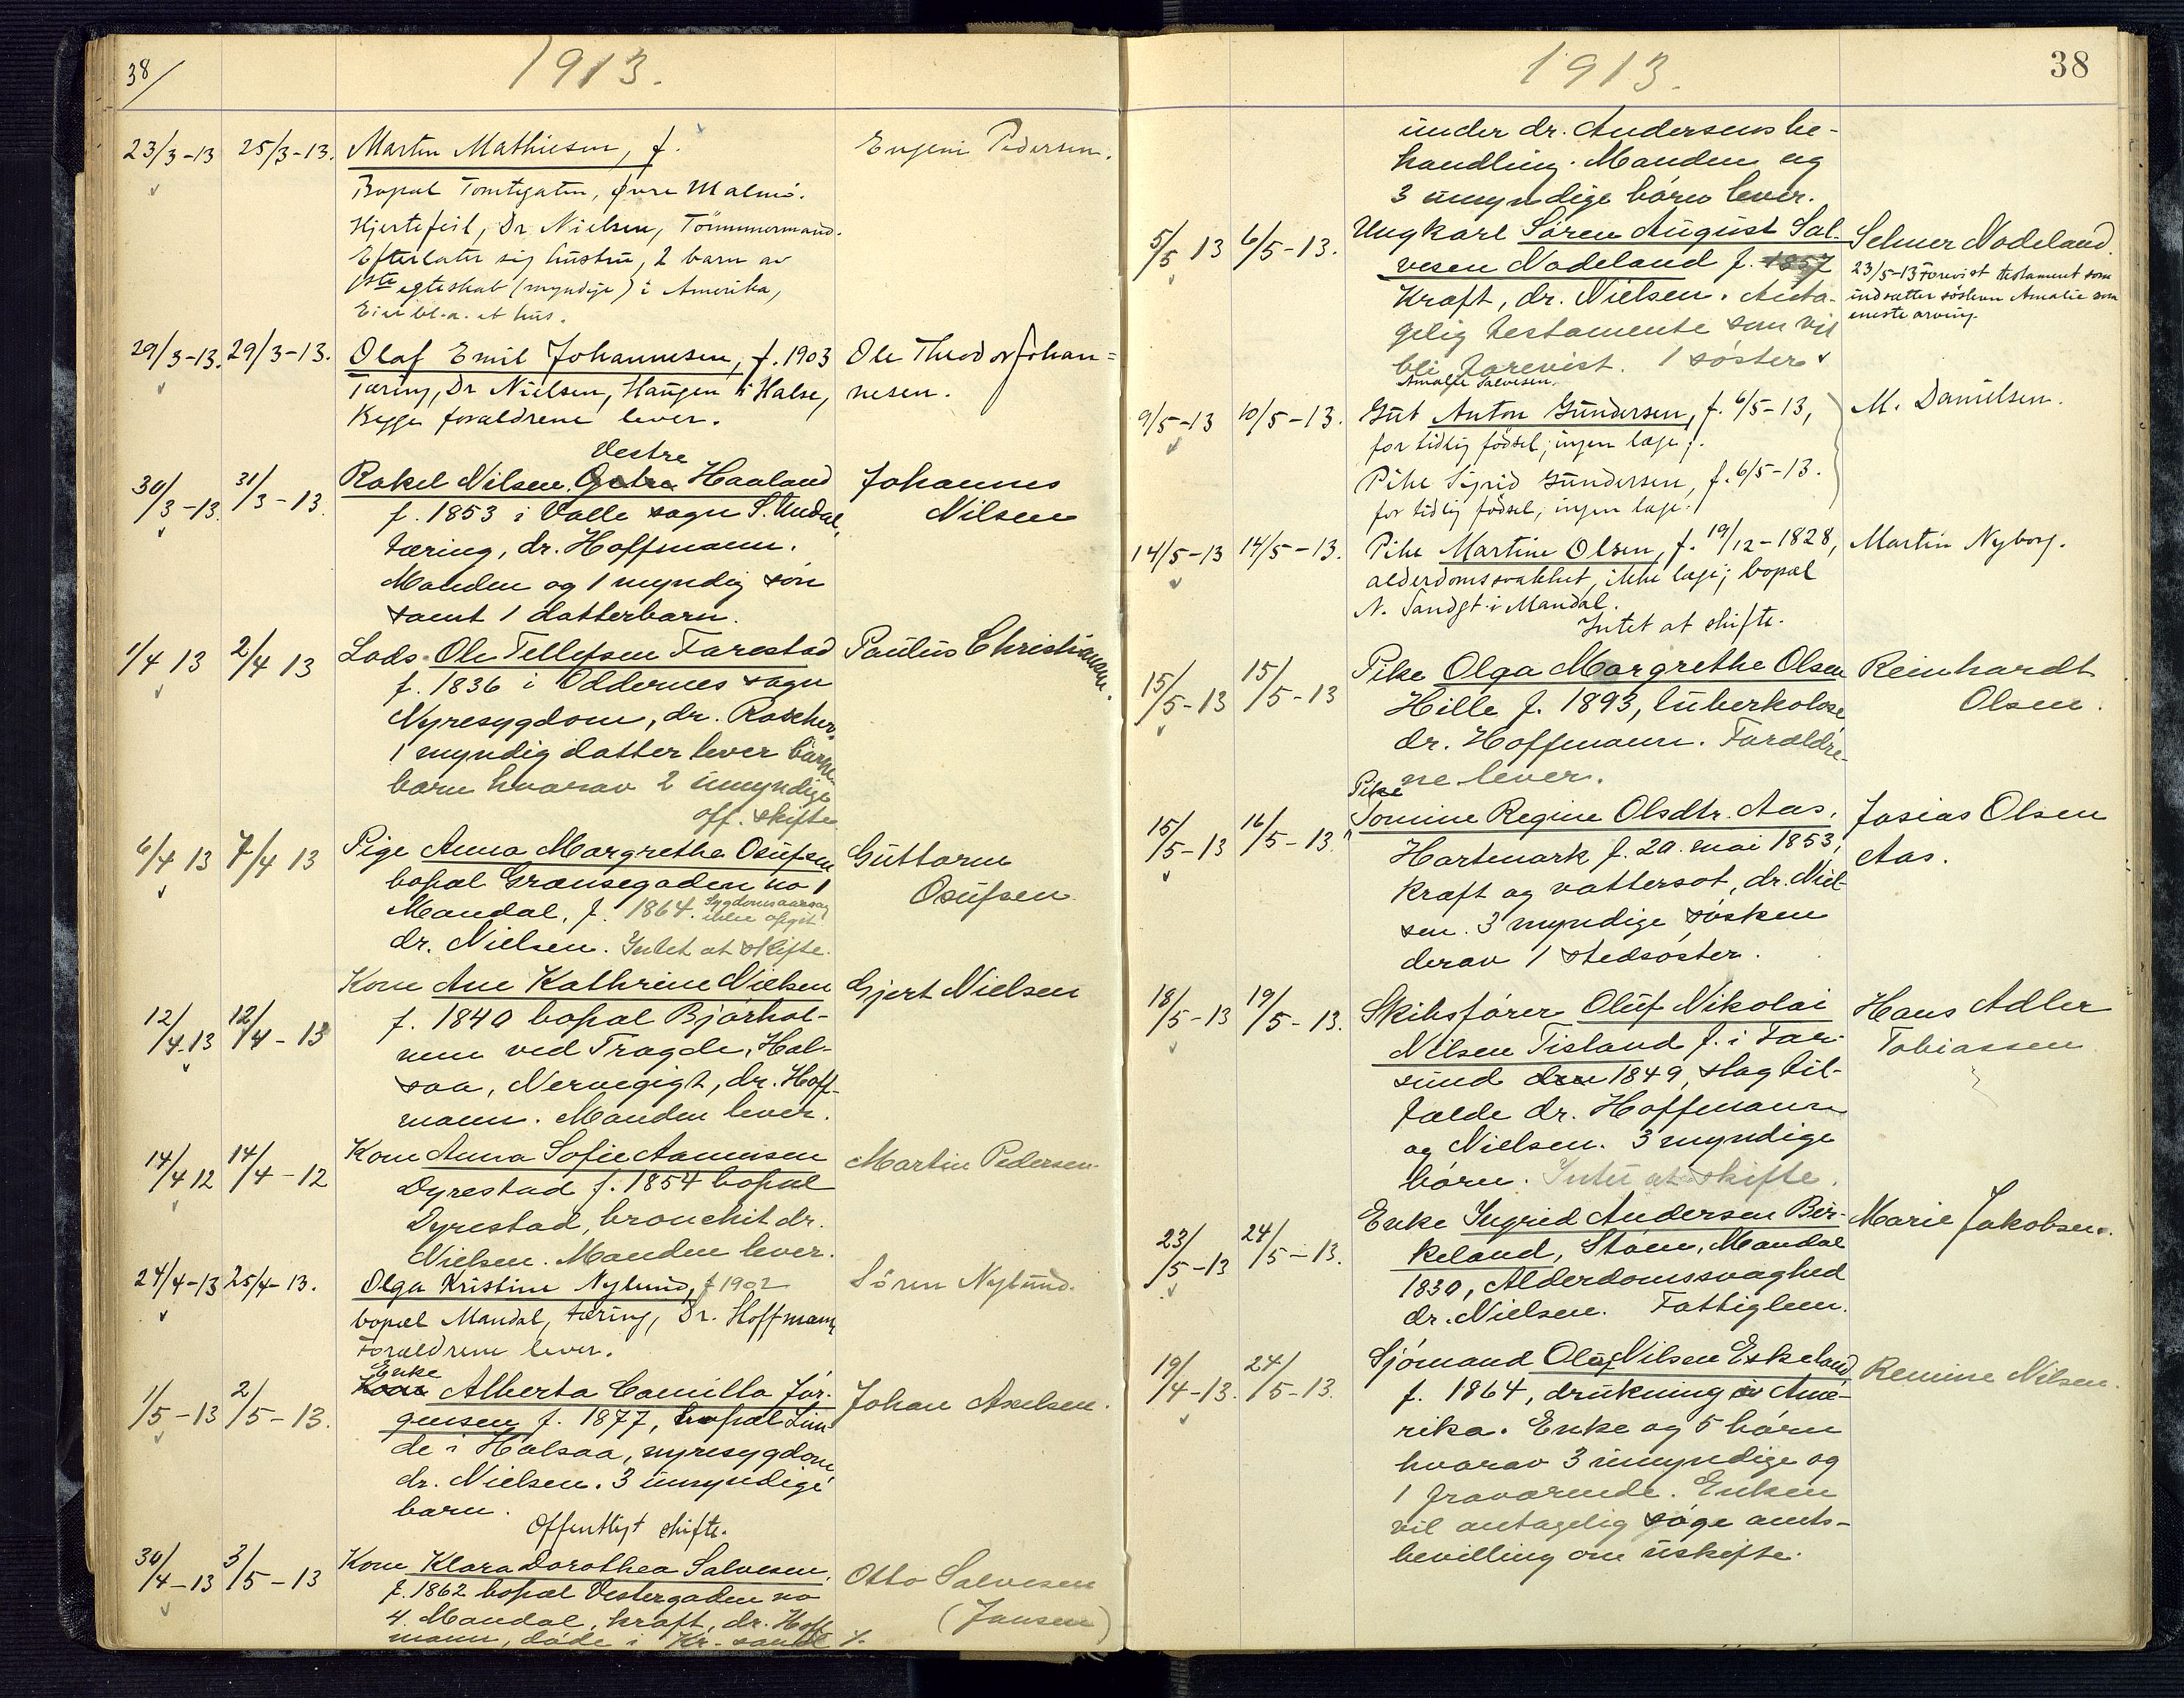 38/
1913.
23/3-13 25/3-13. Martin Mathiesen, f. Eugeni Pedersen.
Bopæl Tomtegaten, øvre Malmö.
Hjertefeil, Dr Nielsen, Tömmermand.
Efterlater sig hustru, 2 barn av
1ste egteskab (myndige) i Amerika,
Eier bl.a. et hus.
29/3-13. 29/3-13. Olaf Emil Johannesen, f. 1903 Ole Theodor Johan=
Tæring, Dr Nielsen, Haugen i Halse, nesen.
Begge forældrene lever.
Vestre
30/3-13. 31/3-13. Rakel Nilsen Østre Haaland Johannes
f. 1853 i Valle sogn S. Undal, Nilsen
tæring, dr. Hoffmann.
Manden og 1 myndig søn
samt 1 datterbarn.
1/4 13 2/4 13 Lods Ole Tellefsen Farestad Paulus Christiansen.
f. 1836 i Oddernes sogn
Nyresygdom, dr. Roscher,
1 myndig datter lever barne-
barn hvorav 2 umyndige
off. skifte
6/4 13 7/4 13 Pige Anna Margrethe Osufsen Guttorm
bopæl Grænsegaden no 1 Osufsen
Mandal, f. 1864. Sygdomsaarsag
ikke opgit
dr. Nielsen. Intet at skifte.
12/4-13 12/4-13 Kone Ane Kathrine Nielsen Gjert Nielsen
f. 1840 bopæl Bjørhol-
men ved Tregde, Hal-
saa, Nervegigt, dr. Hoff-
mann. Manden lever.
14/4 12 14/4-12 Kone Anna Sofie Aanensen Martin Pedersen
Dyrestad f. 1854 bopæl
Dyrestad, bronchit dr.
Nielsen. Manden lever.
24/4-13 25/4-13. Olga Kristine Nylund, f 1902 Søren Nylund.
bopæl Mandal, tæring, Dr. Hoffmann,
Forældrene lever.
Enke
1/5-13 2/5-13. Kone Alberta Camilla Jør- Johan Axelsen.
gensen f. 1877, bopæl Lun-
de i Halsaa, nyresygdom,
dr. Nielsen. 3 umyndige
barn.
Offentligt skifte.
30/4-13 3/5-13 Kone Klara Dorothea Salvesen, Otto Salvesen
f. 1862 bopæl Vestergaden no (Jansen)
4 Mandal, kraft, dr. Hoff-
mann, døde i Kr.-sand
1913.
38
under dr. Andersens be-
handling. Manden og
3 umyndige børn lever.
5/5 13 6/5-13. Ungkarl Søren August Sal- Selmer Nodeland
vesen Nodeland f. 1857 23/5-13 Forevist testament som
Kraft, dr. Nielsen. Anta- indsætter søsteren Amalie som
gelig testamente som vil eneste arving.
bli forevist. 1 søster
Amalie Salvesen.
9/5-13 10/5-13. Gut Anton Gundersen, f. 6/5-13, M. Danielsen.
for tidlig födsel; ingen læge;.
Pike Sigrid Gundersen, f. 6/5-13.
for tidlig födsel; ingen læge.
14/5-13 14/5-13. Pike Martine Olsen, f. 19/12-1828, Martin Nyborg.
alderdomssvakhet, ikke læge; bopæl
N. Sandgt. i Mandal.
Intet at skifte.
15/5-13 15/5-13 Pike Olga Margrethe Olsen Reinhardt
Hille f. 1893, tuberkolose, Olsen.
dr. Hoffmann. Forældre-
ne lever.
Pike
15/5-13 16/5-13. Tomine Regine Olsdtr. Aas, Josias Olsen
Hartmark f. 20. mai 1853, Aas.
Kraft og vattersot, dr. Niel-
sen. 3 myndige søsken
derav 1 stedsøster.
18/5-13 19/5-13. Skibsfører Oluf Nikolai Hans Adler
Nilsen Tisland f. i Far- Tobiassen
sund den 1849, slagtil-
fælde dr. Hoffmann
og Nielsen. 3 myndige
børn. Intet at skifte.
23/5-13 24/5-13. Enke Ingrid Andersen Bir- Marie Jakobsen.
keland, Støen, Mandal
1830, Alderdomssvaghed
dr. Nielsen. Fattiglem.
19/4-13. 24/5-13. Sjømand Oluf Nilsen Eskeland Remine Nilsen.
f. 1864, drukning i Ame-
rika. Enke og 5 børn
hvorav 3 umyndige og
1 fraværende. Enken
vil antagelig søge amts-
bevilling om uskifte.